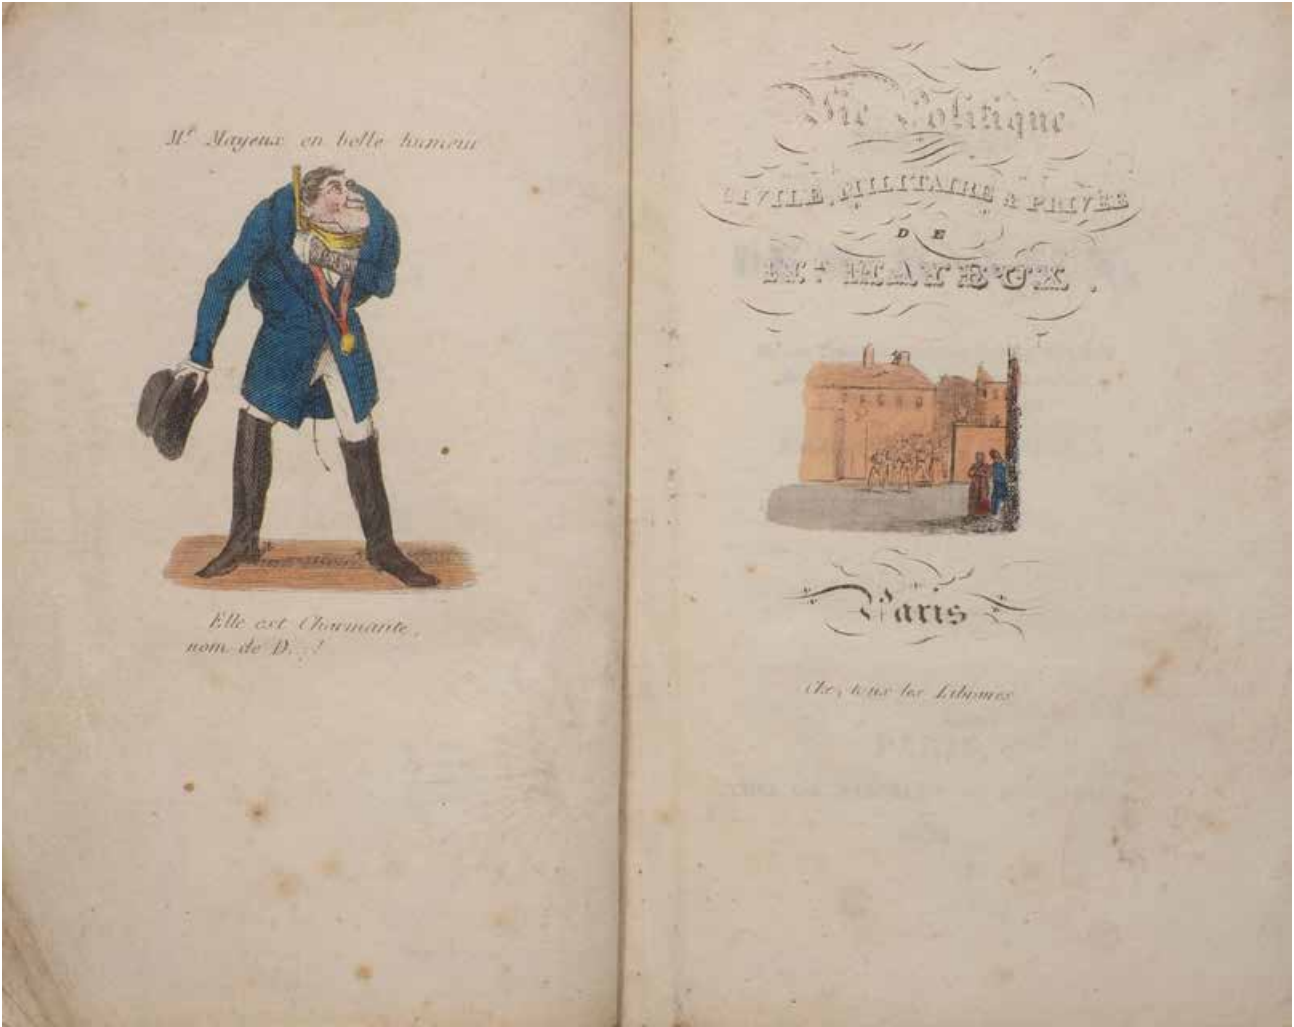 Mr Mayeux en belle humeur
Elle est Charmante,
nom de D...!
Vie Politique
CIVILE, MILITAIRE & PRIVÉE
DE
Mr MAYEUX.
Paris
Chez tous les Libraires
PARIS,